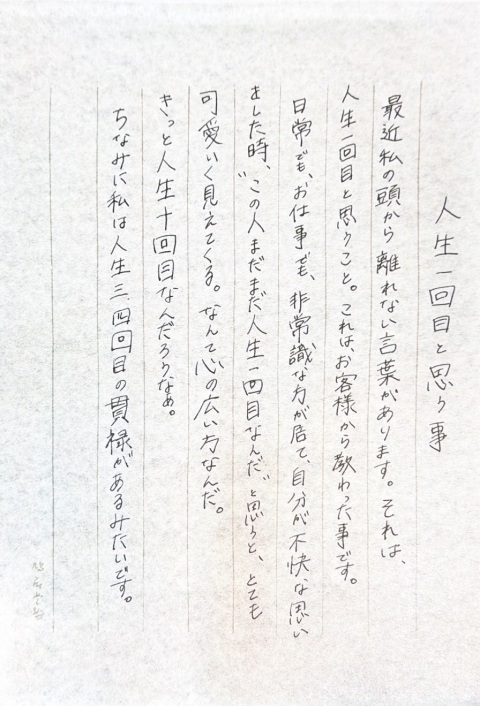 人生一回目と思う事
最近私の頭から離れない言葉があります。それは、
人生一回目と思うこと。これはお客様から教わった事です。
日常でも、お仕事でも、非常識な方が居て、自分が不快な思い
をした時、“この人まだまだ人生一回目なんだ”と思うと、とても
可愛いく見えてくる。なんて心の広い方なんだ。
きっと人生十回目なんだろうなぁ。
ちなみに私は人生三、四回目の貫禄があるみたいです。